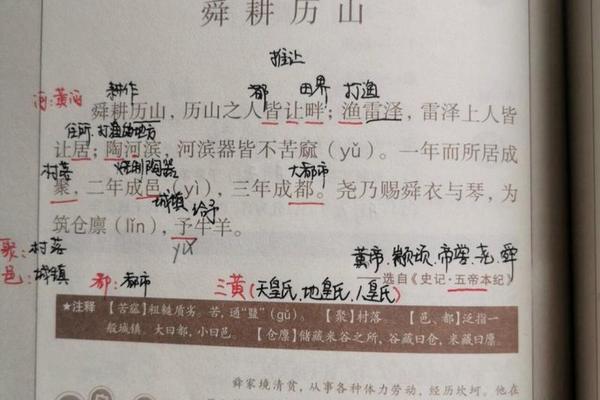 舜耕历山
推让
河:黄河 耕作 都 田界 打渔
舜耕历山，历山之人皆让畔；渔雷泽，雷泽上人皆
住所 打渔的地方
让居；陶河滨，河滨器皆不苦窳（yǔ）。一年而所居成
村落 烧制陶器 大都市
聚，二年成邑（yì），三年成都。尧乃赐舜衣与琴，为
城镇 给予
筑仓廪（lǐn），予牛羊。
聚:村落 yǔ 黄帝、颛顼、帝喾、尧、舜
邑:城镇 都:都市 三黄(天皇氏,地皇氏,人皇氏) 选自《史记·五帝本纪》
★注释 【苦窳】粗糙质劣。苦，通“盬”（gǔ）。 【聚】村落。 【邑、都】泛指一
般城镇。大曰都，小曰邑。 【仓廪】储藏米谷之所，谷藏曰仓，米藏曰廪。
舜家境清贫，从事各种体力劳动，经历坎坷。他在